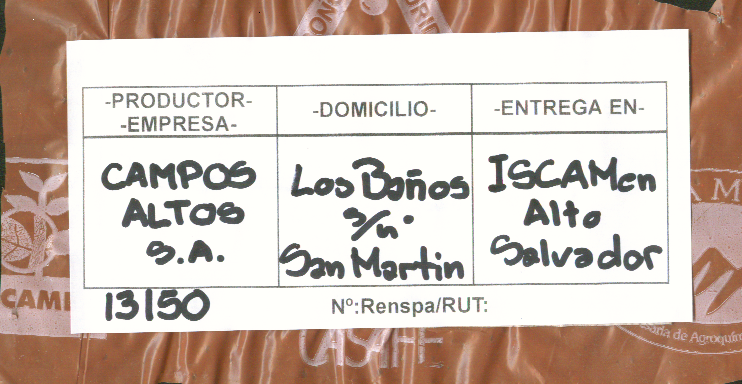 -PRODUCTOR-
-EMPRESA-
-DOMICILIO-
-ENTREGA EN-
CAMPOS
ALTOS
S.A.
Los Baños
s/n°
San Martin
ISCAMen
Alto
Salvador
13150
Nº:Renspa/RUT:
CAM
de Agroquím